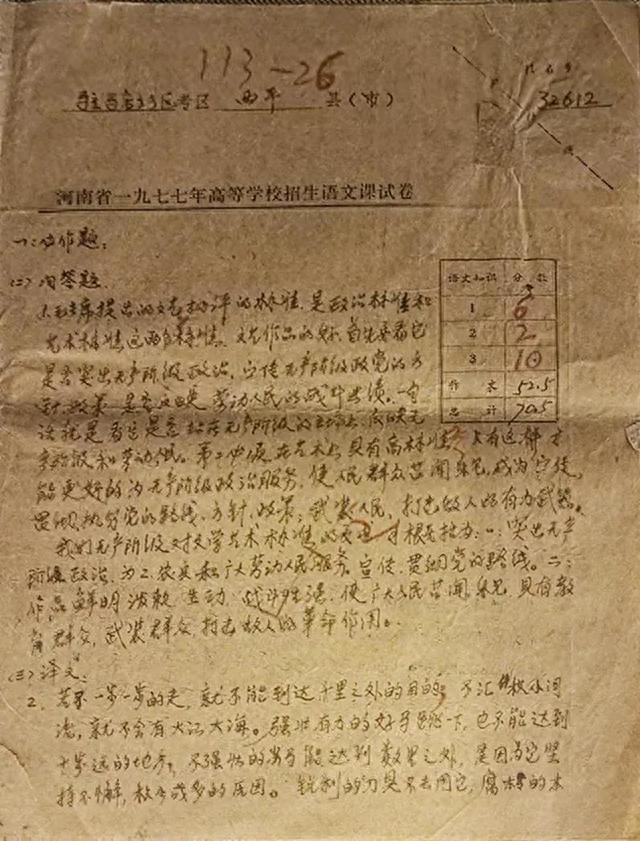 113-26
驻马店地区考区 西平 县(市)
32612
河南省一九七七年高等学校招生语文课试卷
一:作作题:
(二)问答题.
语文知识 分数
3
1 6
2 2
3 10
作文 52.5
总计 70.5
1.毛主席提出的文艺批评的标准,是政治标准和
艺术标准这两个标准。文艺作品的好,首先要看它
是否突出无产阶级政治,宣传无产阶级政党的方
针、政策,是否反映劳动人民的战斗业绩。一句
话就是看它是否站在无产阶级的立场上,反映无
产阶级和劳动人民。第二必须在艺术上具有高标准,只有这样才
能更好的为无产阶级政治服务,使人民群众喜闻乐见,成为宣传,
贯彻,执行党的路线、方针、政策,武装人民,打击敌人的有力武器。
我们无产阶级对文学艺术标准的要求根本为:一:突出无产
阶级政治,为工农兵和广大劳动人民服务,宣传、贯彻党的路线。二:
作品鲜明泼辣、生动、战斗性强,使广大人民喜闻乐见,具有教
育群众,武装群众,打击敌人的革命作用。
(三)译文:
2. 若不一步一步的走,就不能到达千里之外的目的;不汇集积水河
流,就不会有大江大海。强壮有力的好马跳一下,也不能达到
十步远的地方;不强壮的劣马能达到数里之外,是因为它坚
持不懈,积少成多的原因。锐利的刀具不去用它,腐朽的木